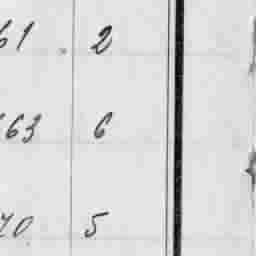 61 . 2
63 6
70 5